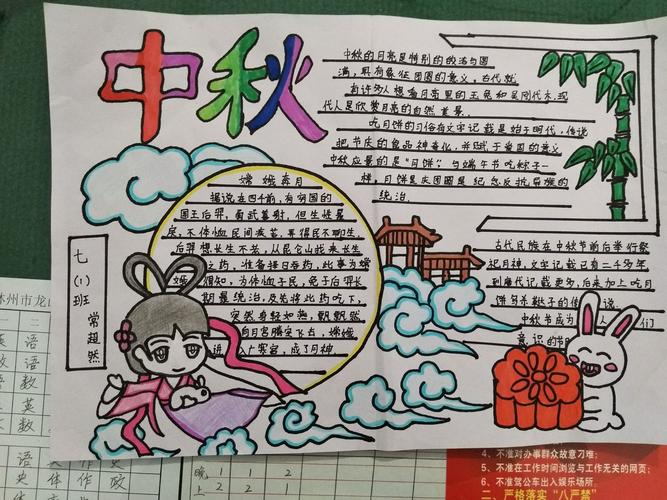 中秋
中秋的月亮是特别的皎洁与圆
满,具有象征团圆的意义。古代就
有许多人想着月亮里的玉兔和吴刚伐木,现
代人是欣赏月亮的自然美景.
吃月饼的习俗在文字记载是始于明代,传说
把节庆的食品神奇化,并赋于爱国的意义
中秋应景的是"月饼",与端午节吃粽子一
样,月饼是庆团圆是纪念反抗异族的
统治.
嫦娥奔月
据说在四千前,有穷国的
国王后羿,勇武善射,但生性暴
戾,不体恤民间疾苦,弄得民不聊生,
后羿想长生不老,从昆仑山找来长生
之药,准备择日吞药,此事为嫦
娥得知,为体恤子民,免于后羿长
期暴统治,及先将此药吃下,
突然身轻如燕,飘飘然
自月宫腾空飞去,嫦娥
进入广寒宫,成了月神
七
(1)
班
常超然
古代民族在中秋节前后举行祭
祀月神,文字记载已有二千多年
到唐代记载更多,后来加上吃月
饼 杀鞑子的传 说.
中秋节成为 人 们
意识的节
林州市龙山
二 二
英 语
语 数
数 英
语
史 体 作 政
体 作
晚 1 1 2
上 2 2 1
4、不准对办事群众故意刁难;
5、不准在工作时间浏览与工作无关的网
6、不准驾公车出入娱乐场所.
二、严格落实"八严禁"